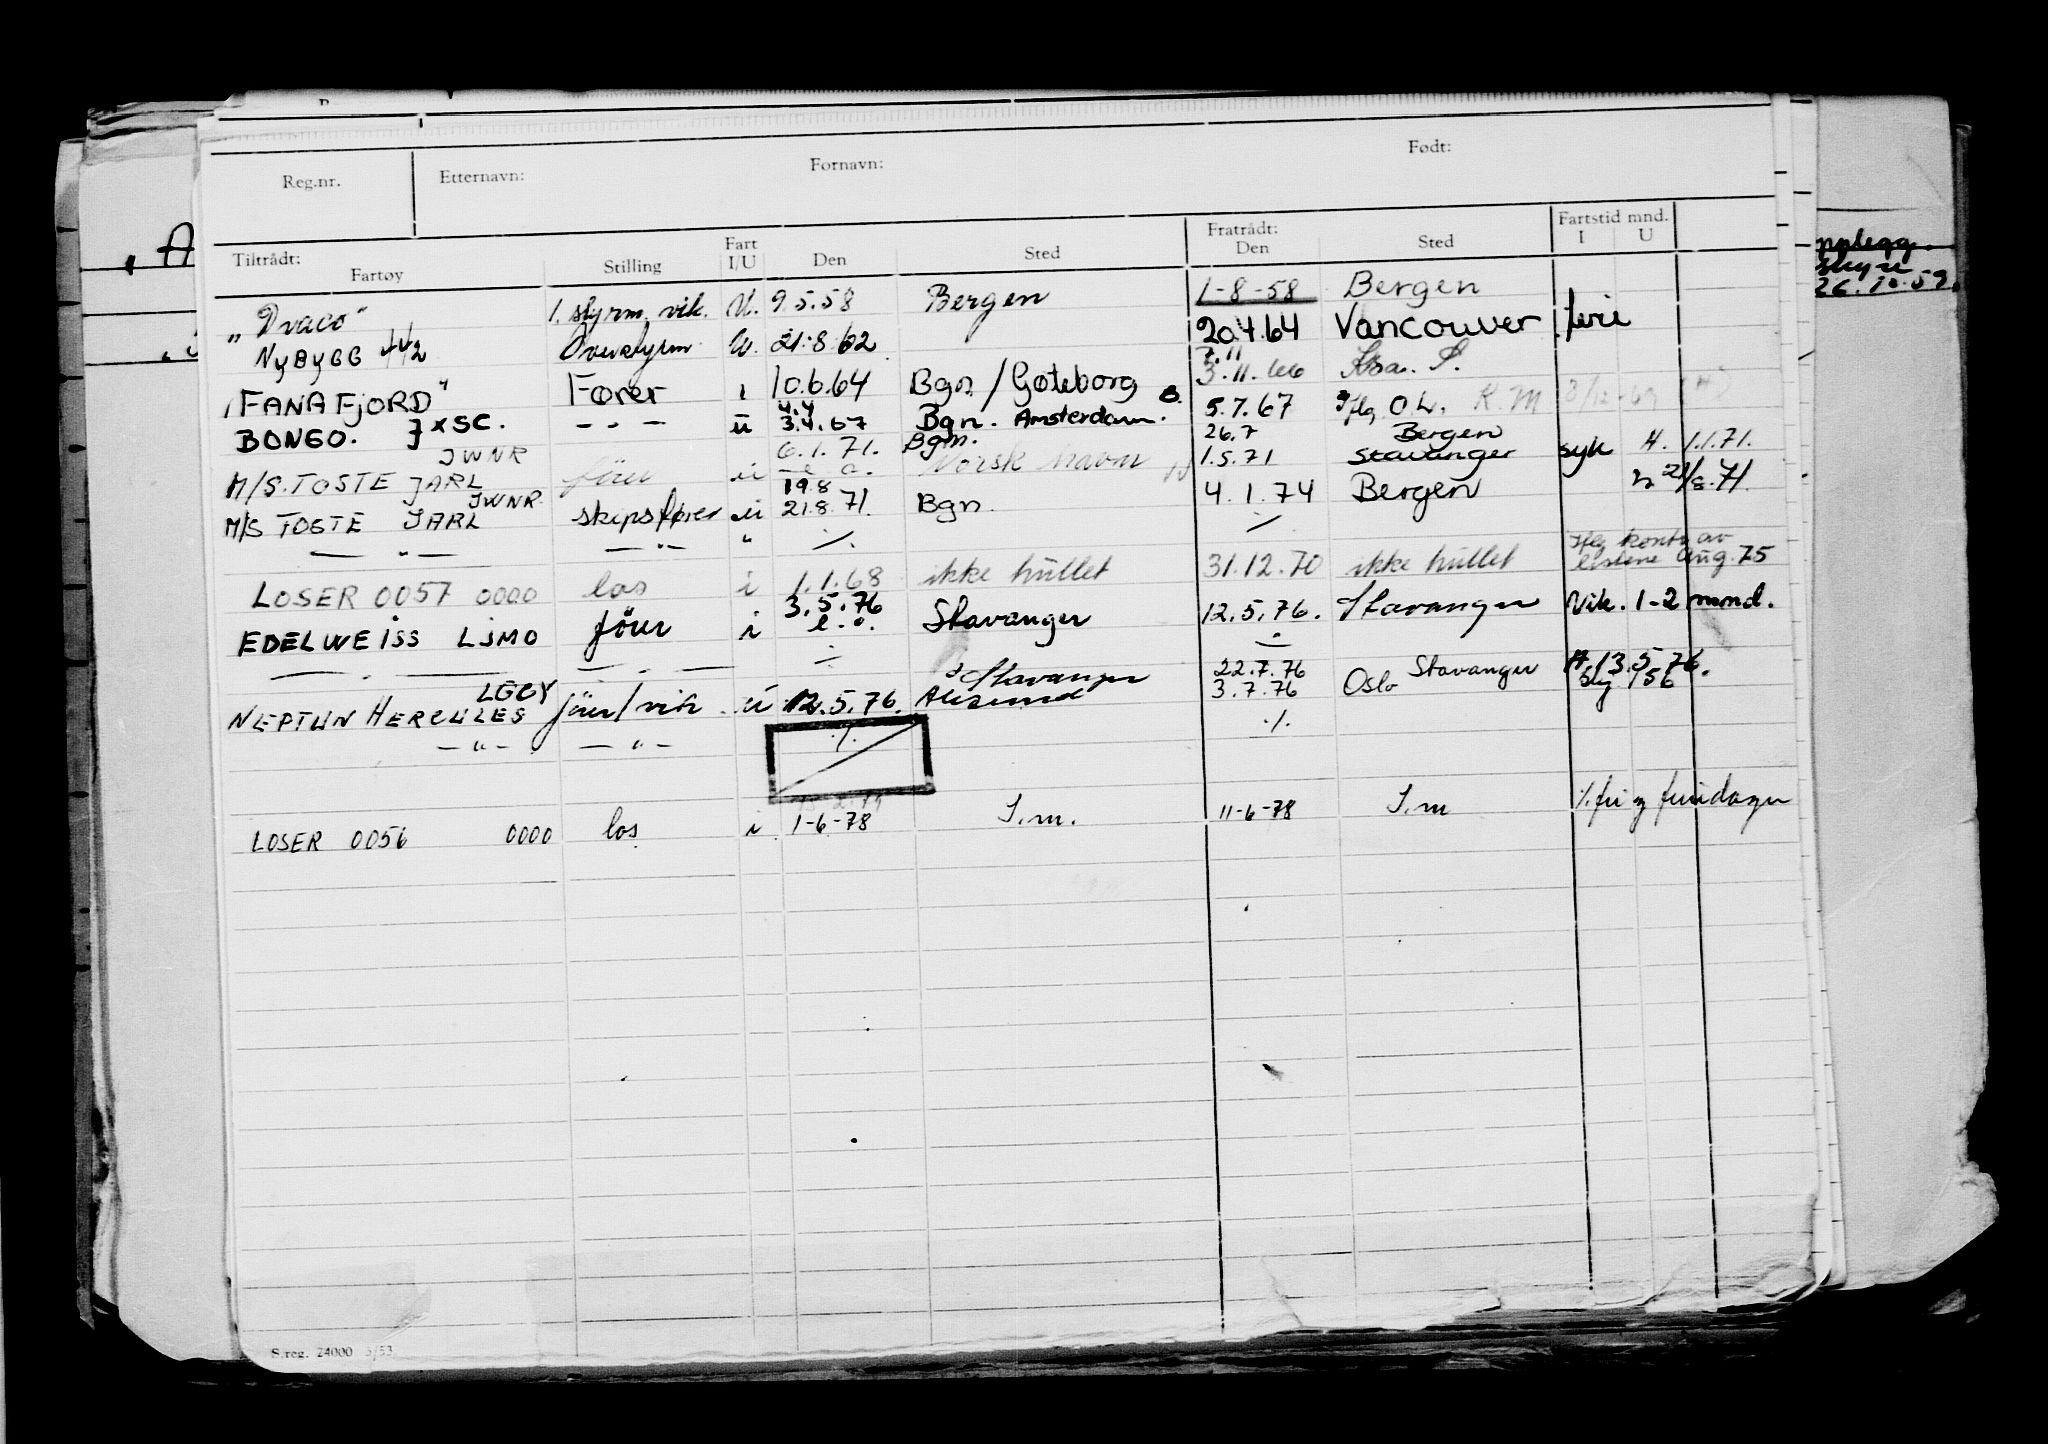 Reg.nr. Etternavn: Fornavn: Født:
Tiltrådt: Fartøy Stilling Fart I/U Den Sted Fratrådt: Den Sted Fartstid mnd. I U
„Draco" 1. styrm. vik. U. 9.5.58 Bergen 1-8-58 Bergen
NyByGG 442 Overstyrm U. 21.8.62 20.4.64 Vancouver ferie
7.11
„FANAFJORD" Fører i 10.6.64 Bgn / Gøteborg 3.11.66
4.4
BONGO. } XSC. — " — u 3.4.67 Bgn. Amsterdam. 5.7.67 Iflg O.L. K.M
JWNR 6.1.71. Bgn. 26.7 Bergen
M/S. TOSTE JARL fører u Norsk havn 1.5.71 Stavanger syk H. 1.1.71.
JWNR 19.8
M/S TOSTE JARL skipsfører u 21.8.71. Bgn. 4.1.74 Bergen
— " — — " — " ./. ./.
Iflg kontr av
LOSER 0057 0000 los i 1.1.68 ikke hullet 31.12.70 ikke hullet Aug. 75
3.5.76
EDELWEISS LJMO fører i e.o. Stavanger 12.5.76. Stavanger Vik. 1-2 mnd.
— " — — " —
LGCY Stavanger 22.7.76 Stavanger H. 13.5.76.
NEPTUN HERCULES fører/vik u 12.5.76. Ålesund 3.7.76 Oslo
— " — — " — ./. ./.
LOSER 0056 0000 los i 1-6-78 I.m. 11-6-78 I.m
S.reg. 24000 5/53
26.10.59